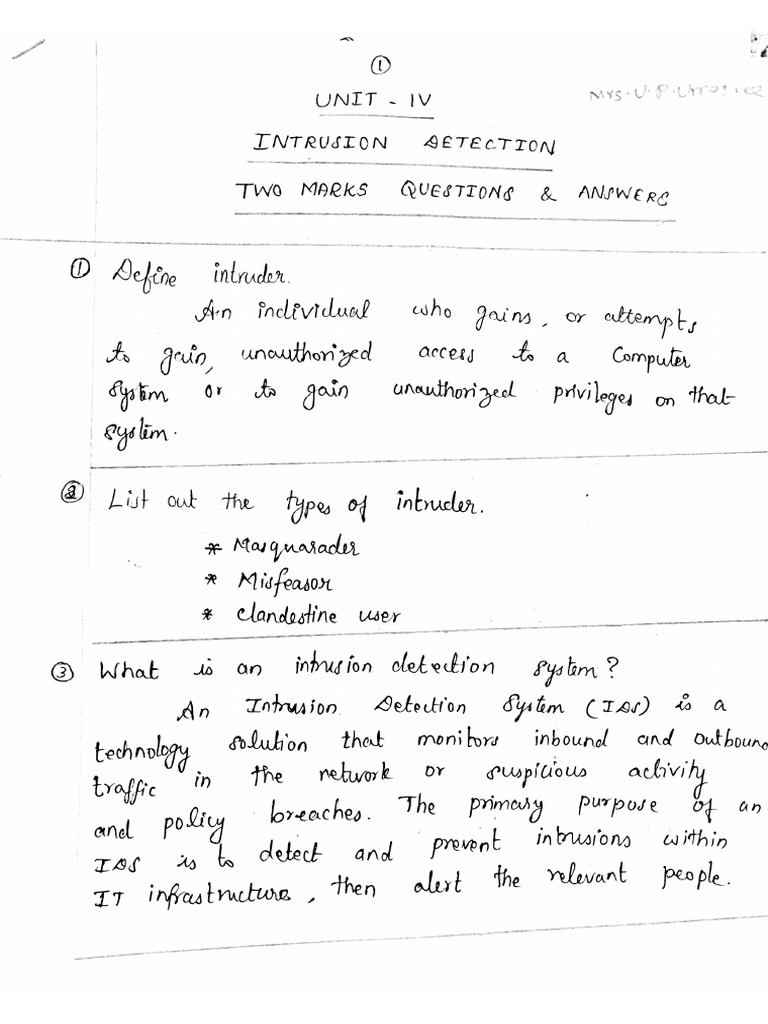 ①
UNIT - IV
Mrs. U. P.
INTRUSION DETECTION
TWO MARKS QUESTIONS & ANSWERS
① Define intruder.
An individual who gains, or attempts
to gain, unauthorized access to a Computer
system or to gain unauthorized privileges on that
system.
② List out the types of intruder.
* Masquarader
* Misfeasor
* Clandestine user
③ What is an intrusion detection system?
An Intrusion Detection System (IDS) is a
technology solution that monitors inbound and outbound
traffic in the network or suspicious activity
and policy breaches. The primary purpose of an
IDS is to detect and prevent intrusions within
IT infrastructure, then alert the relevant people.